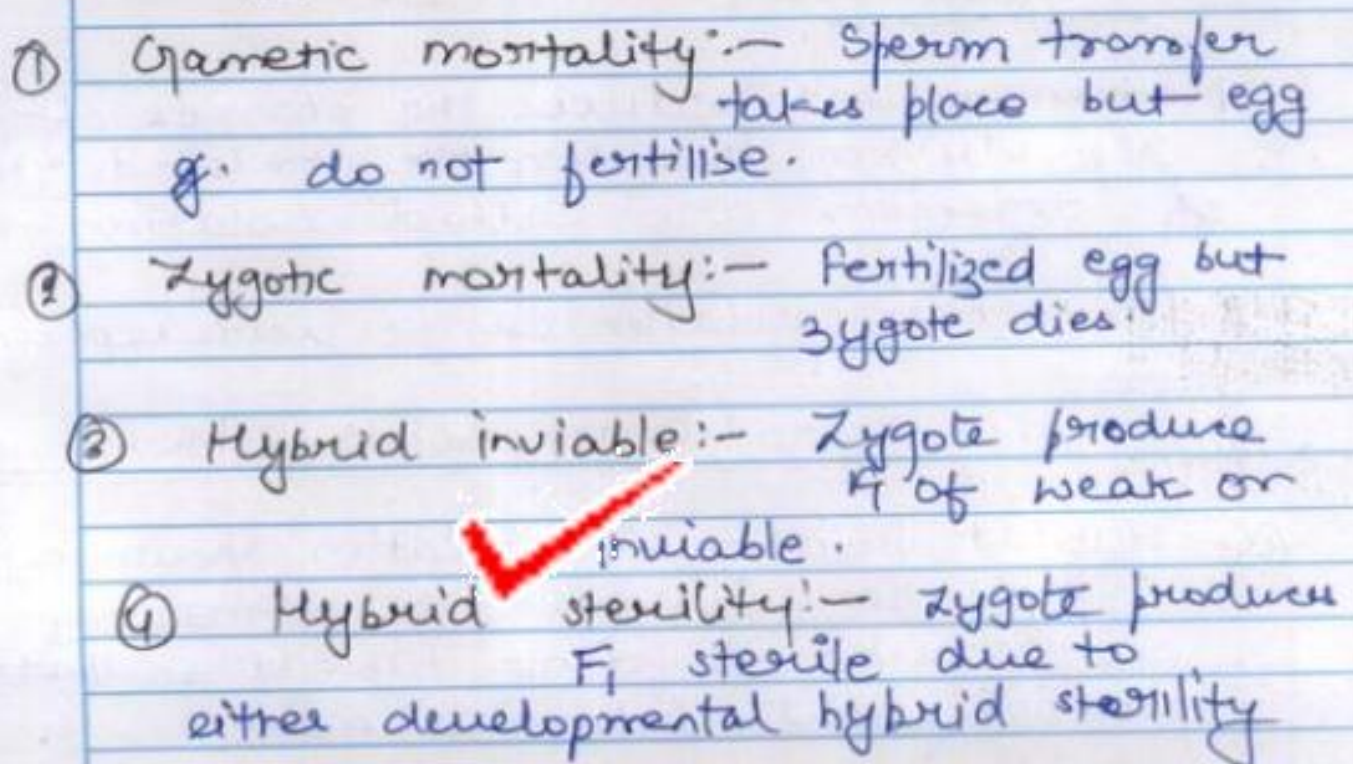 ① Gametic mortality:- Sperm transfer
takes place but egg
do not fertilise.
② Zygotic mortality:- Fertilized egg but
zygote dies.
③ Hybrid inviable:- Zygote produce
F1 of weak or
inviable.
④ Hybrid sterility:- Zygote produces
F1 sterile due to
either developmental hybrid sterility